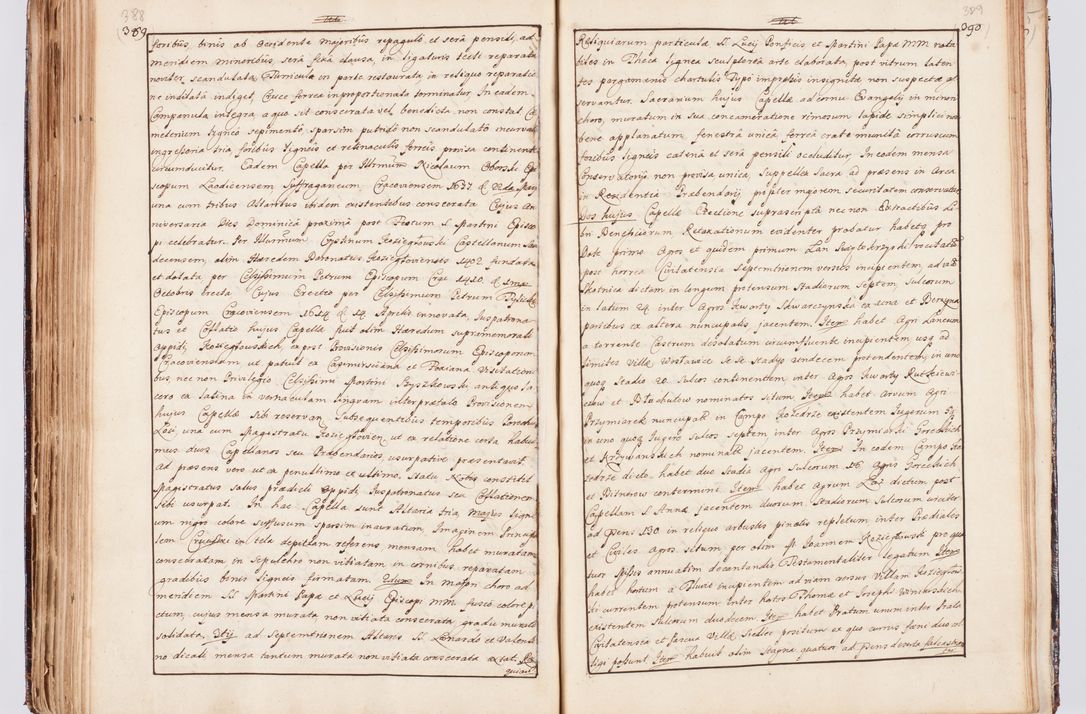 388
389
foribus, binis ab occidente majoribus repagulo et serâ pensili, ad
meridiem minoribus, serâ fixâ clausa, in ligaturis tecti reparata
noviter scandulata, Turricula ex parte restaurata in reliquo reparatio
ne indilatâ indiget, Cruce ferrea inproportionata terminatur. In eadem
Campanula integra, a quo sit consecrata vel benedicta non constat. Cæ
meterium ligneo sepimento, sparsim putrido non scandulato incurvato
ingressoria tria, foribus ligneis et retinaculis ferreis provisa continente
circumducitur. Eadem Capella per Illrmum Nicolaum Oborski Epi
scopum Laodicensem Suffraganeum Cracoviensem 1657
una cum tribus Altaribus ibidem existentibus consecrata Cujus An
niversaria Dies Dominica proxima post Festum S. Martini Episco
pi celebratur. Per Illurmum Cristinum Koziegłowski Castellanum San
decensem, olim Hæredem Patronatus Koziegłoviensis 1402 fundata
et dotata per Celsissimum Petrum Episcopum Crac: 1420
Octobris erecta Cujus Erectio per Celsissimum Petrum Tylicki
Episcopum Cracoviensem 1614 d. 14 Aprilis innovata, Juspatrona
tus et Collatio hujus Capellæ fuit olim Hæredum supramemorati
oppidi Koziegłowskich, ex post Provisionis Celsissimorum Episcoporum
Cracoviensium ut patuit ex Casimirsciana et Foxiana Visitationi
bus nec non Privilegio Celsissimi Martini Szyszkowski, antiquo sin
cero ex latina in vernaculam linguam interpretato Provisionem
hujus Capellæ sibi reservan. Subsequentibus temporibus Parochi
Loci, una cum Magistratu Koziegłovien. ut ex relatione certa habui
mus duos Capellanos seu Præbendarios usurpative præsentavit.
Ad præsens vero ut ex penultimo et ultimo. Statu constitit
Magistratus solus prædicti oppidi Juspatronatus seu Collationem
sibi usurpat. In hac Capella sunt Altaria tria, Majus ligne
um nigro colore suffusum sparsim inauratum, Imaginem Principa
lem Crucifixi in tela depictam referens mensam habet muratam
consecratam in Sepulchro non vitiatam in cornibus reparatam
gradibus binis ligneis firmatam. 2dum In majori choro ad
meridiem SS. Martini Papæ et Lucij Episcopi MM. fusco colore pi
ctum, cujus mensa murata non vitiata consecrata, gradu murato
solidata, 3tij ad Septemtrionem Altaris SS. Leonardo et Valenti
no dicati mensa tantum murata non vitiata consecrata extat. Re
quiarum
389
390
Reliquiarum particulæ SS. Lucij Pontificis et Martini Papæ MM. nota
biles in Theca lignea sculptoreâ arte elaborata, post vitrum laten
tes pergamenis chartulis Typo impressis insignitæ non suspectæ as
servantur. Sacrarium hujus Capellæ ad cornu Evangelij in minori
choro, muratum in sua concameratione rimosum lapide simplici non
bene applanatum, fenestrâ unicâ ferreâ crate munitâ coruscum
foribus ligneis catenâ et serâ pensili occluditur. In eodem mensa
Conservatorijs non provisa, unica, Suppellex sacra ad præsens in Arca
in Residentia Præbendarij propter majorem securitatem conservatur.
Dos hujus Capellæ Erectione suprascripta nec non Extractibus Li
bri Beneficiorum Retaxationum evidenter probatur habetq pro
Dote primo Agros et quidem primum Łan Swiętokrzyski vocitatum
post horrea Civitatensia Septemtrionem versus incipientem, ad viam
Skotnica dictam in longum protensum Stadiorum Septem, Sulcorum
in latum 24 inter Agros Kwarty Sdwarczynski ex una et Derzyna
partibus ex altera nuncupatis jacentem. Item habet Agri Laneum
a torrente Castrum desolatum circumfluente incipientem usq ad
limites Villæ Winstawice se se Stadijs undecem protendentem, in uno
quoq Stadio 20 Sulcos continentem inter Agros Kwarty Rutkiewi
czow et Blachutow nominatos situm. Item habet Arvum Agri
Przymiarek nuncupatũ in Campo Kozedrze existentem Jugerum
in uno quoq Jugero Sulcos Septem inter Agros Przymiarki Goreckich
et Krzywanskich nominatos jacentem. Item In eodem Campo Ko
zedrze dicto habet duo Stadia Agri Sulcorum 16 Agris Goreckich
et Bitnerow conterminũ. Item habet Agrum Łaz dictum post
Capellam S. Annæ jacentem duorum Stadiorum Sulcorum circiter
ad præns 130 in reliquo arbustis pinetis repletum inter Prædiales
et Civiles Agros situm per olim M. Joannem Koziegłowski pro qua
tuor Missis annuatim decantandis Testamentaliter legatum. Item
habet hortum a Fluvio incipientem ad viam versus Villam Koziegłow
ki currentem protensum inter hortos Thomæ et Josephi Winiarskich
existentem Sulcorum duodecem. Item habet Pratum unum inter Prata
Civitatensia et Pascua Villæ Siedlec positum ex quo currus fæni duo col
ligi possunt. Item habuit olim Stagna quatuor ad præns deserta